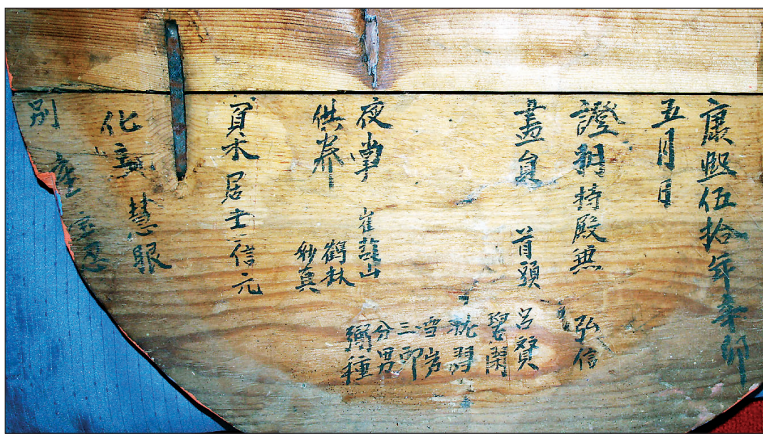 康熙伍拾年辛卯
五月日
證明持殿無 弘信
畫員 首頭 呂賢
碧閑
枕翊
雪岑
三印
分男
弼種
夜掌 崔莫山
供養 鶴林
妙真
買木居士信元
化主 慧眼
別座